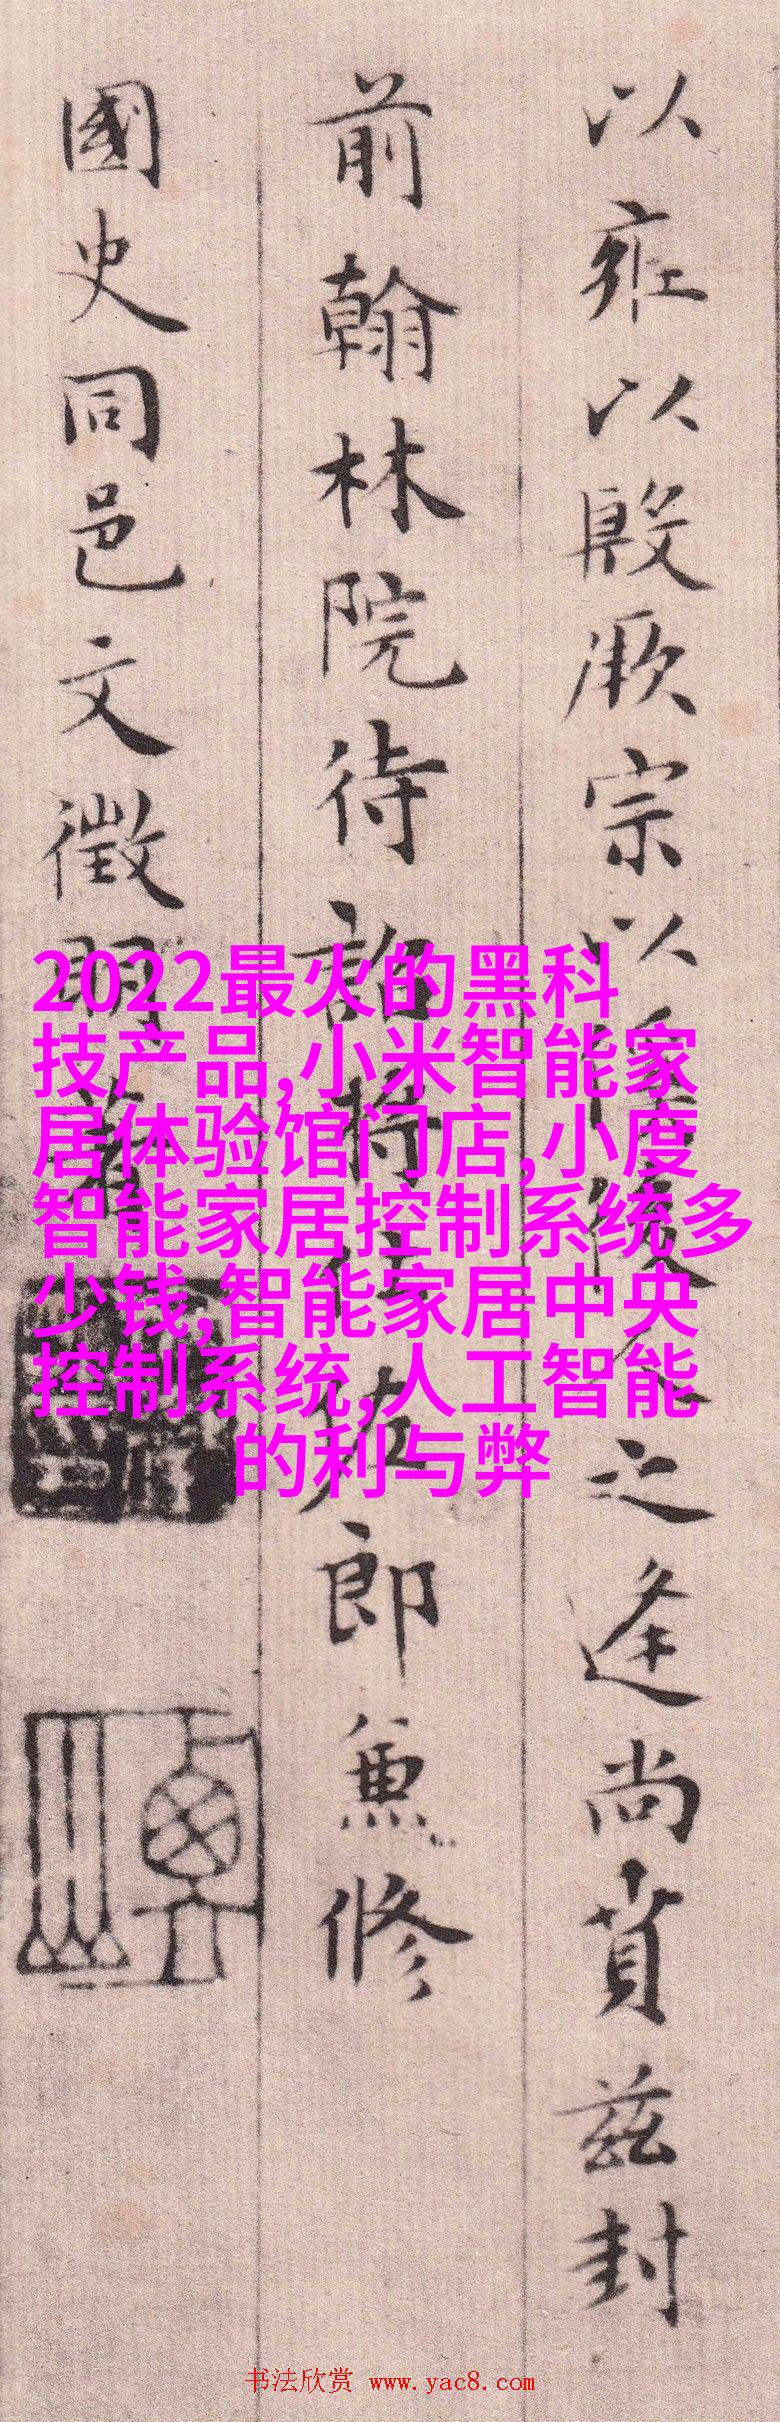 以雍以殷厥宗以
之逢尚賁兹封
前翰林院待詔將仕佐郎兼修
國史同邑文徵明著
2022最火的黑科
技产品,小米智能家
居体验馆门店,小度
智能家居控制系统多
少钱,智能家居中央
控制系统,人工智能
的利与弊
书法欣赏 www.yac8.com